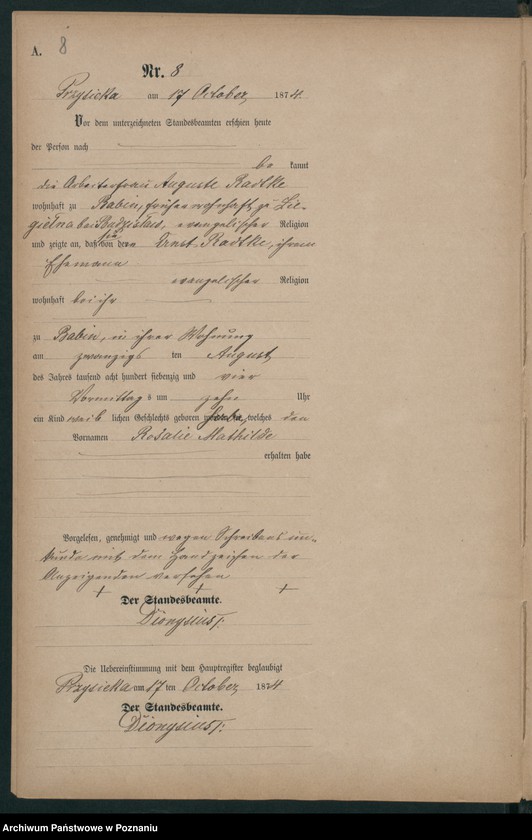 A. 8
Nr. 8
Przysieka am 17 October 1874.
Vor dem unterzeichneten Standesbeamten erschien heute
der Person nach
be kannt
die Arbeiterfrau Auguste Radtke
wohnhaft zu Babin, früher wohnhaft zu
bei evangelischer Religion
und zeigte an, daß von Ernst Radtke, ihrem
Ehemann
evangelischer Religion
wohnhaft bei ihr
zu Babin, in ihrer Wohnung
am zwanzigs ten August
des Jahres tausend acht hundert siebenzig und vier
Vormittag s um zehn Uhr
ein Kind weib lichen Geschlechts geboren welches den
Vornamen Rosalie Mathilde
erhalten habe
Vorgelesen, genehmigt und wegen Schreibens un-
kunde mit dem Handzeichen der
Anzeigenden versehen
+ + +
Der Standesbeamte.
Dionysius
Die Uebereinstimmung mit dem Hauptregister beglaubigt
Przysieka am 17 ten October 1874
Der Standesbeamte.
Dionysius
Archiwum Państwowe w Poznaniu